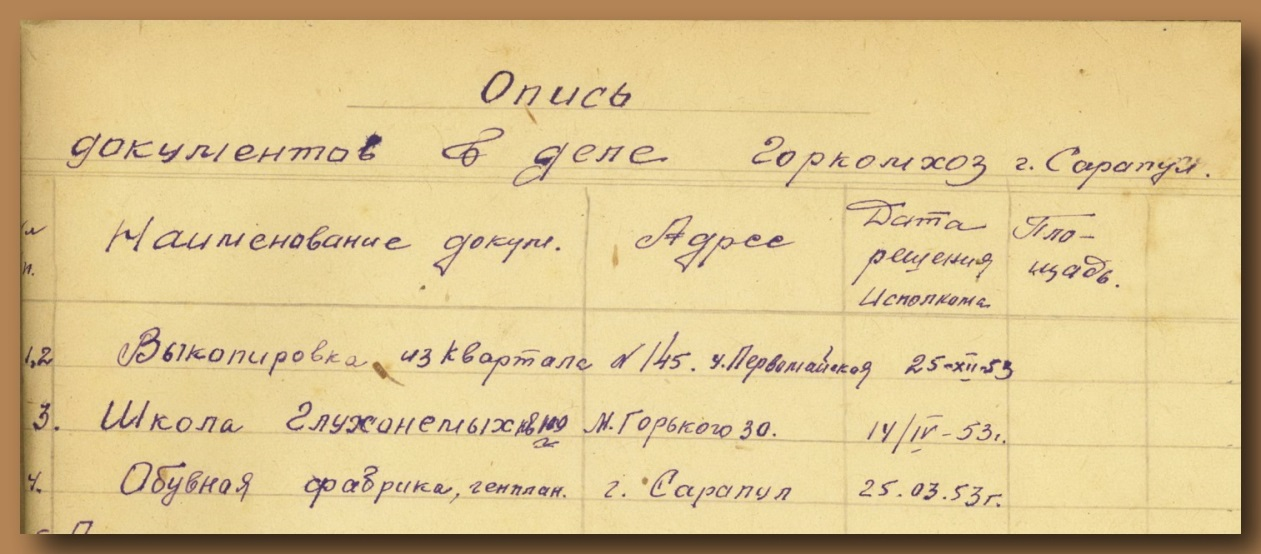 Опись
документов в деле Горкомхоз г. Сарапул.
п.
Наименование докум.
Адрес
Дата
решения
Исполкома
Пло-
щадь.
1,2 Выкопировка из квартала N 145. у. Первомайская 25-XII-53
3. Школа Глухонемых М. Горького 30. 14/IV-53г.
4. Обувная фабрика, генплан. г. Сарапул 25.03.53г.